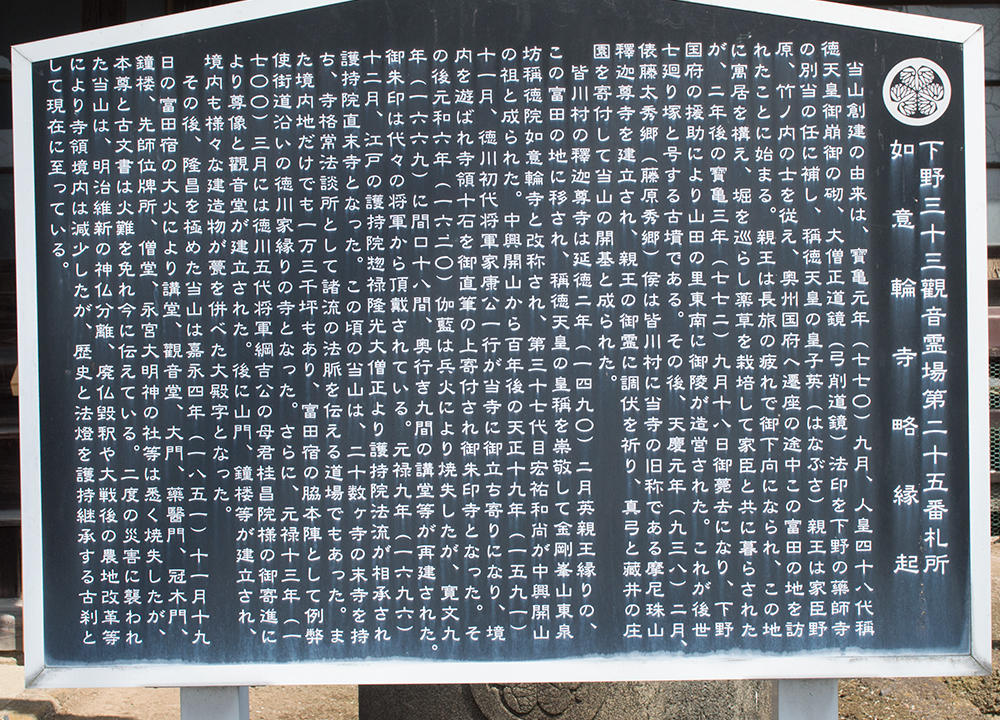 下野三十三觀音霊場第二十五番札所
如意輪寺略縁起
当山創建の由来は、寶亀元年（七七〇）九月、人皇四十八代稱
徳天皇御崩御の砌、大僧正道鏡（弓削道鏡）法印を下野の藥師寺
の別当の任に補し、稱徳天皇の皇子英（はなぶさ）親王は家臣野
原、竹ノ内の士を従え、奥州国府へ遷座の途中この富田の地を訪
れたことに始まる。親王は長旅の疲れで御下向になられ、この地
に寓居を構え、堀を巡らし薬草を栽培して家臣と共に暮らされた
が、二年後の寶亀三年（七七二）九月十八日御薨去になり、下野
国府の援助により山田の里東南に御陵が造営された。これが後世
七廻り塚と号する古墳である。その後、天慶元年（九三八）二月、
俵藤太秀郷（藤原秀郷）侯は皆川村に当寺の旧称である摩尼珠山
釋迦尊寺を建立され、親王の御霊に調伏を祈り、真弓と藏井の庄
園を寄付して当山の開基と成られた。
皆川村の釋迦尊寺は延徳二年（一四九〇）二月英親王縁りの、
この富田の地に移され、稱徳天皇の皇稱を崇敬して金剛峯山東泉
坊稱徳院如意輪寺と改称され、第三十七代目宏祐和尚が中興開山
の祖と成られた。中興開山から百年後の天正十九年（一五九一）
十一月、徳川初代将軍家康公一行が当寺に御立ち寄りになり、境
内を遊ばれ寺領十石を御直筆の上寄付され御朱印寺となった。そ
の後元和六年（一六二〇）伽藍は兵火により焼失したが、寛文九
年（一六六九）に間口十八間、奥行き九間の講堂等が再建された。
御朱印は代々の将軍から頂戴されている。元禄九年（一六九六）
十二月、江戸の護持院惣禄隆光大僧正より護持院法流が相承され
護持院直末寺となった。この頃の当山は、二十数ヶ寺の末寺を持
ち、寺格常法談所として諸流の法脈を伝える道場でもあった。ま
た境内地だけでも一万三千坪もあり、富田宿の脇本陣として例弊
使街道沿いの徳川家縁りの寺となった。さらに、元禄十三年（一
七〇〇）三月には徳川五代将軍綱吉公の母君桂昌院様の御寄進に
より尊像と觀音堂が建立された。後に山門、鐘楼等が建立され、
境内も様々な建造物が甍を併べた大殿字となった。
その後、隆昌を極めた当山は嘉永四年（一八五一）十一月十九
日の富田宿の大火により講堂、觀音堂、大門、藥醫門、冠木門、
鐘楼、先師位牌所、僧堂、永宮大明神の社等は悉く焼失したが、
本尊と古文書は火難を免れ今に伝えている。二度の災害に襲われ
た当山は、明治維新の神仏分離、廃仏毀釈や大戦後の農地改革等
により寺領境内は減少したが、歴史と法燈を護持継承する古刹と
して現在に至っている。